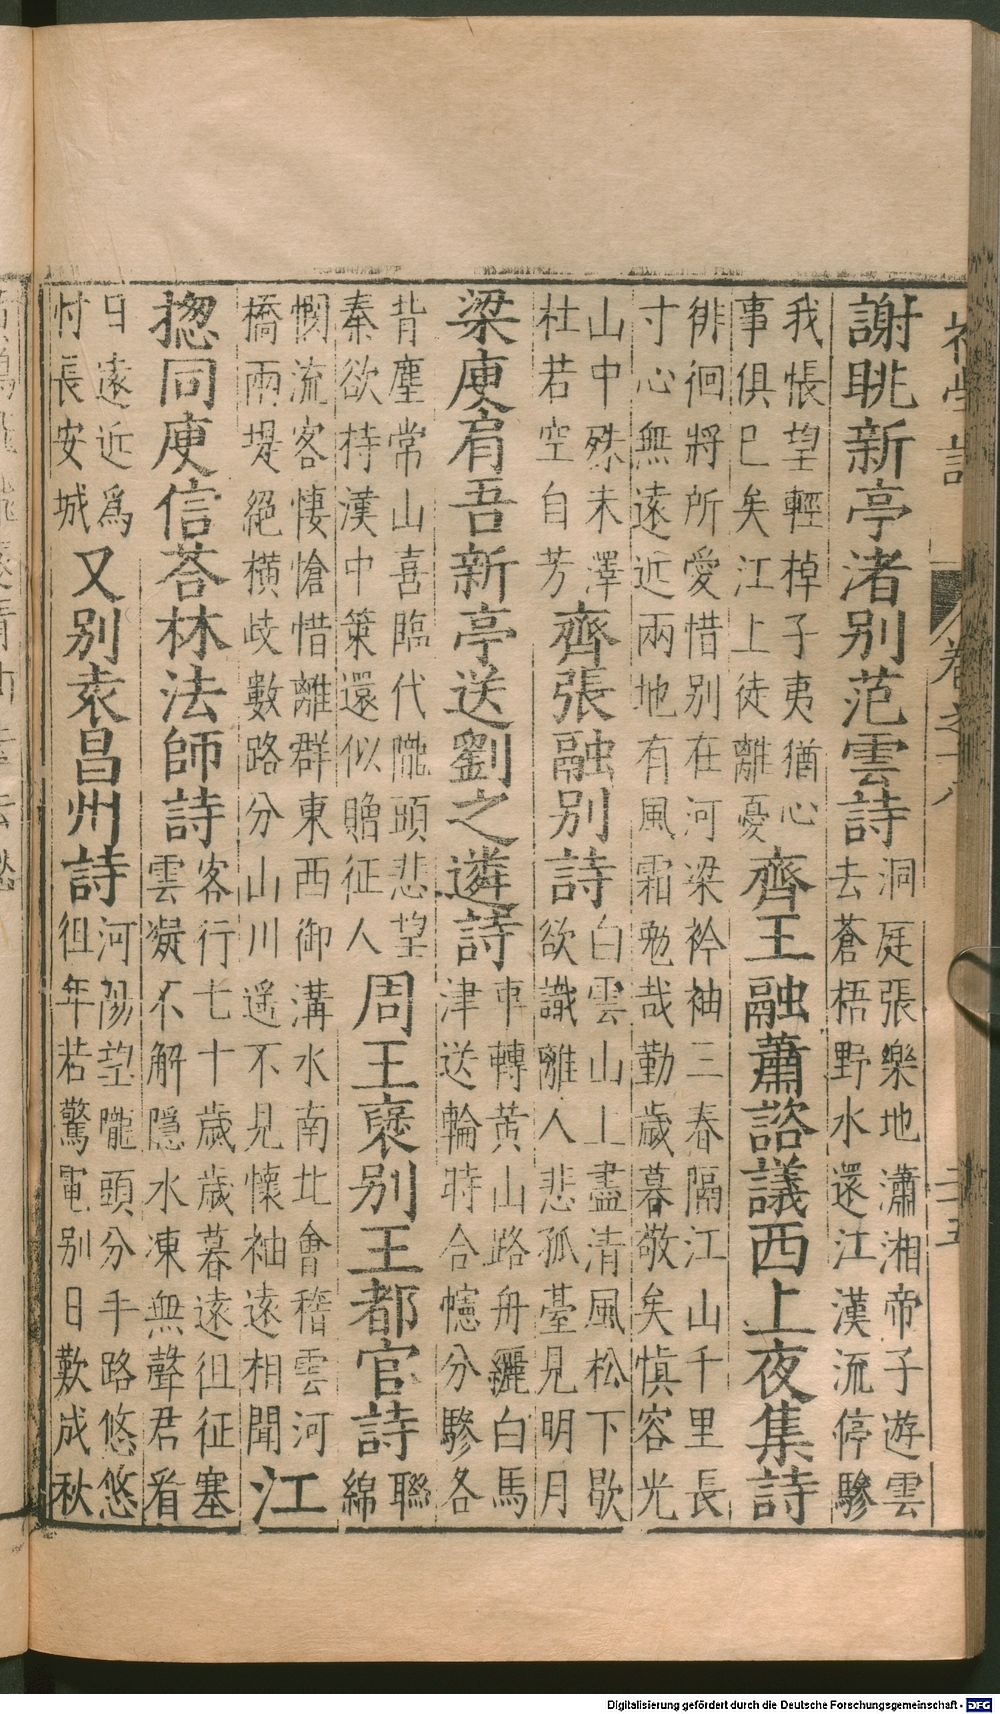 初學記
卷之十八
二十五
謝眺新亭渚别范雲詩
洞庭張樂地瀟湘帝子遊雲
去蒼梧野水還江漢流停驂
我悵望輕棹子夷猶心
事俱巳矣江上徒離憂
齊王融蕭諮議西上夜集詩
徘徊將所愛惜别在河梁衿袖三春隔江山千里長
寸心無遠近兩地有風霜勉哉勤歳暮敬矣慎容光
山中殊未澤
杜若空自芳
齊張融别詩
白雲山上盡清風松下歇
欲識離人悲孤臺見明月
梁庾肩吾新亭送劉之遴詩
車轉黄山路舟纚白馬
津送輪時合幰分驂各
背塵常山喜臨代隴頭悲望
秦欲持漢中策還似贈征人
周王褒别王都官詩
聯
綿
惘流客悽愴惜離群東西御溝水南北會稽雲河
橋兩堤絕横歧數路分山川遥不見懷袖遠相聞
江
揔同庾信荅林法師詩
客行七十歲歲暮遠徂征塞
雲凝不解隱水凍無聲君看
日遠近爲
忖長安城
又别袁昌州詩
河陽望隴頭分手路悠悠
徂年若驚電别日歎成秋
Digitalisierung gefördert durch die Deutsche Forschungsgemeinschaft - DFG